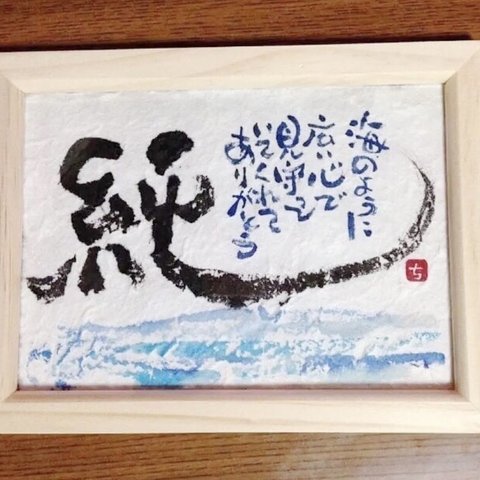 純
海のように
広い心で
見守って
いてくれて
ありがとう
ち